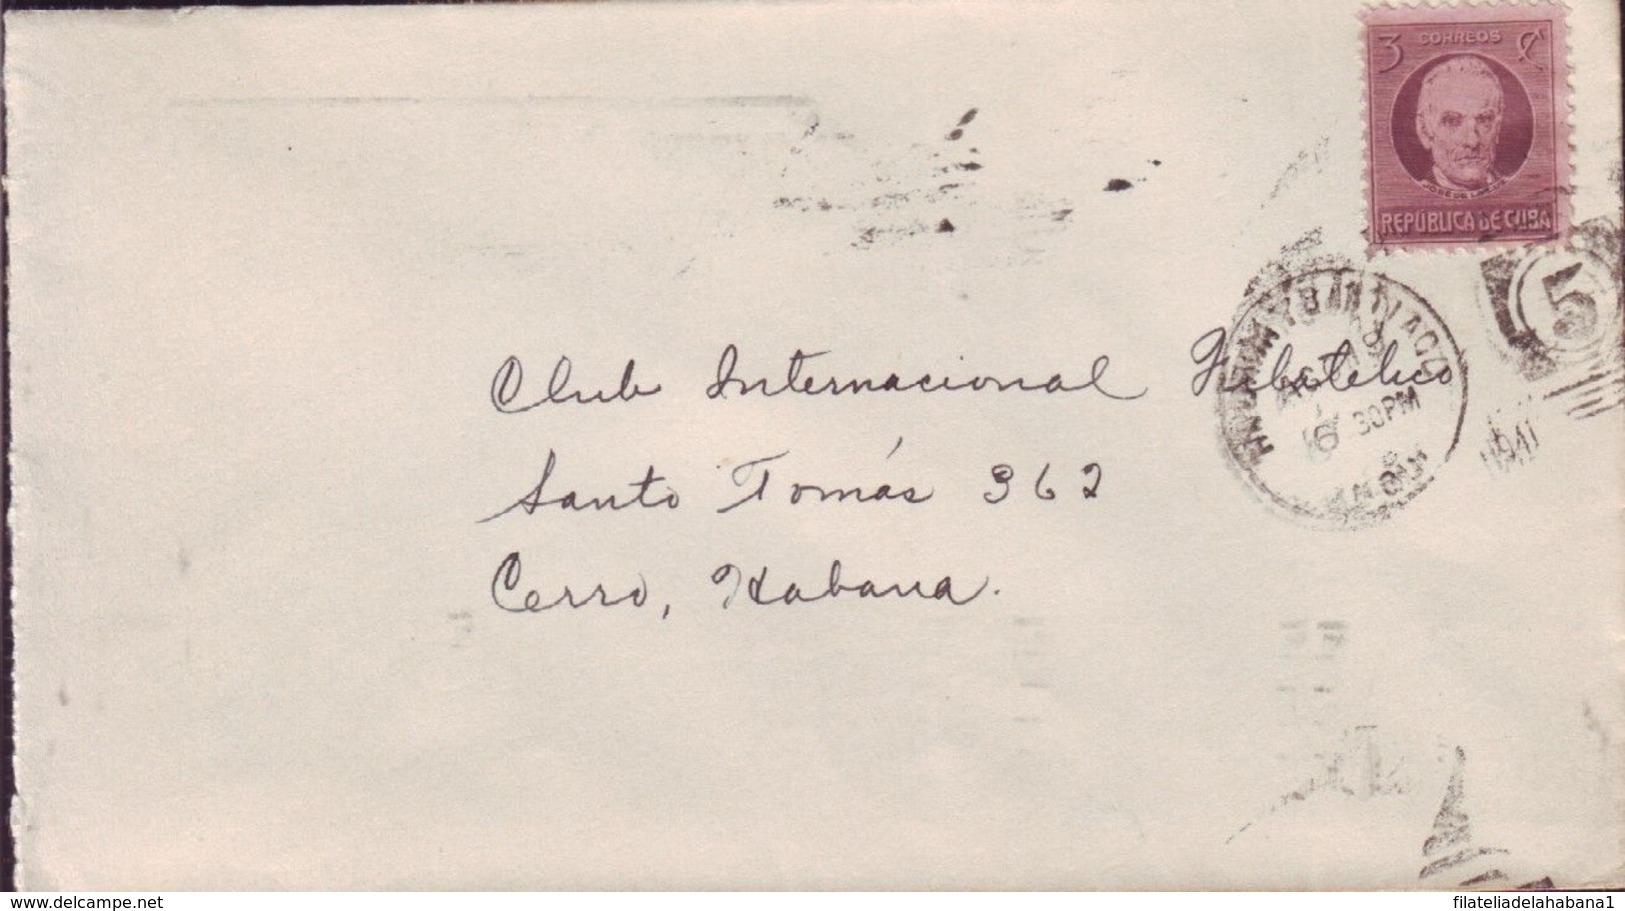 3 CORREOS ₵
REPÚBLICA DE CUBA
5
SANTIAGO
30PM
1941
Club Internacional Filatelico
Santo Tomás 362
Cerro, Habana.
filateliadelahabana1